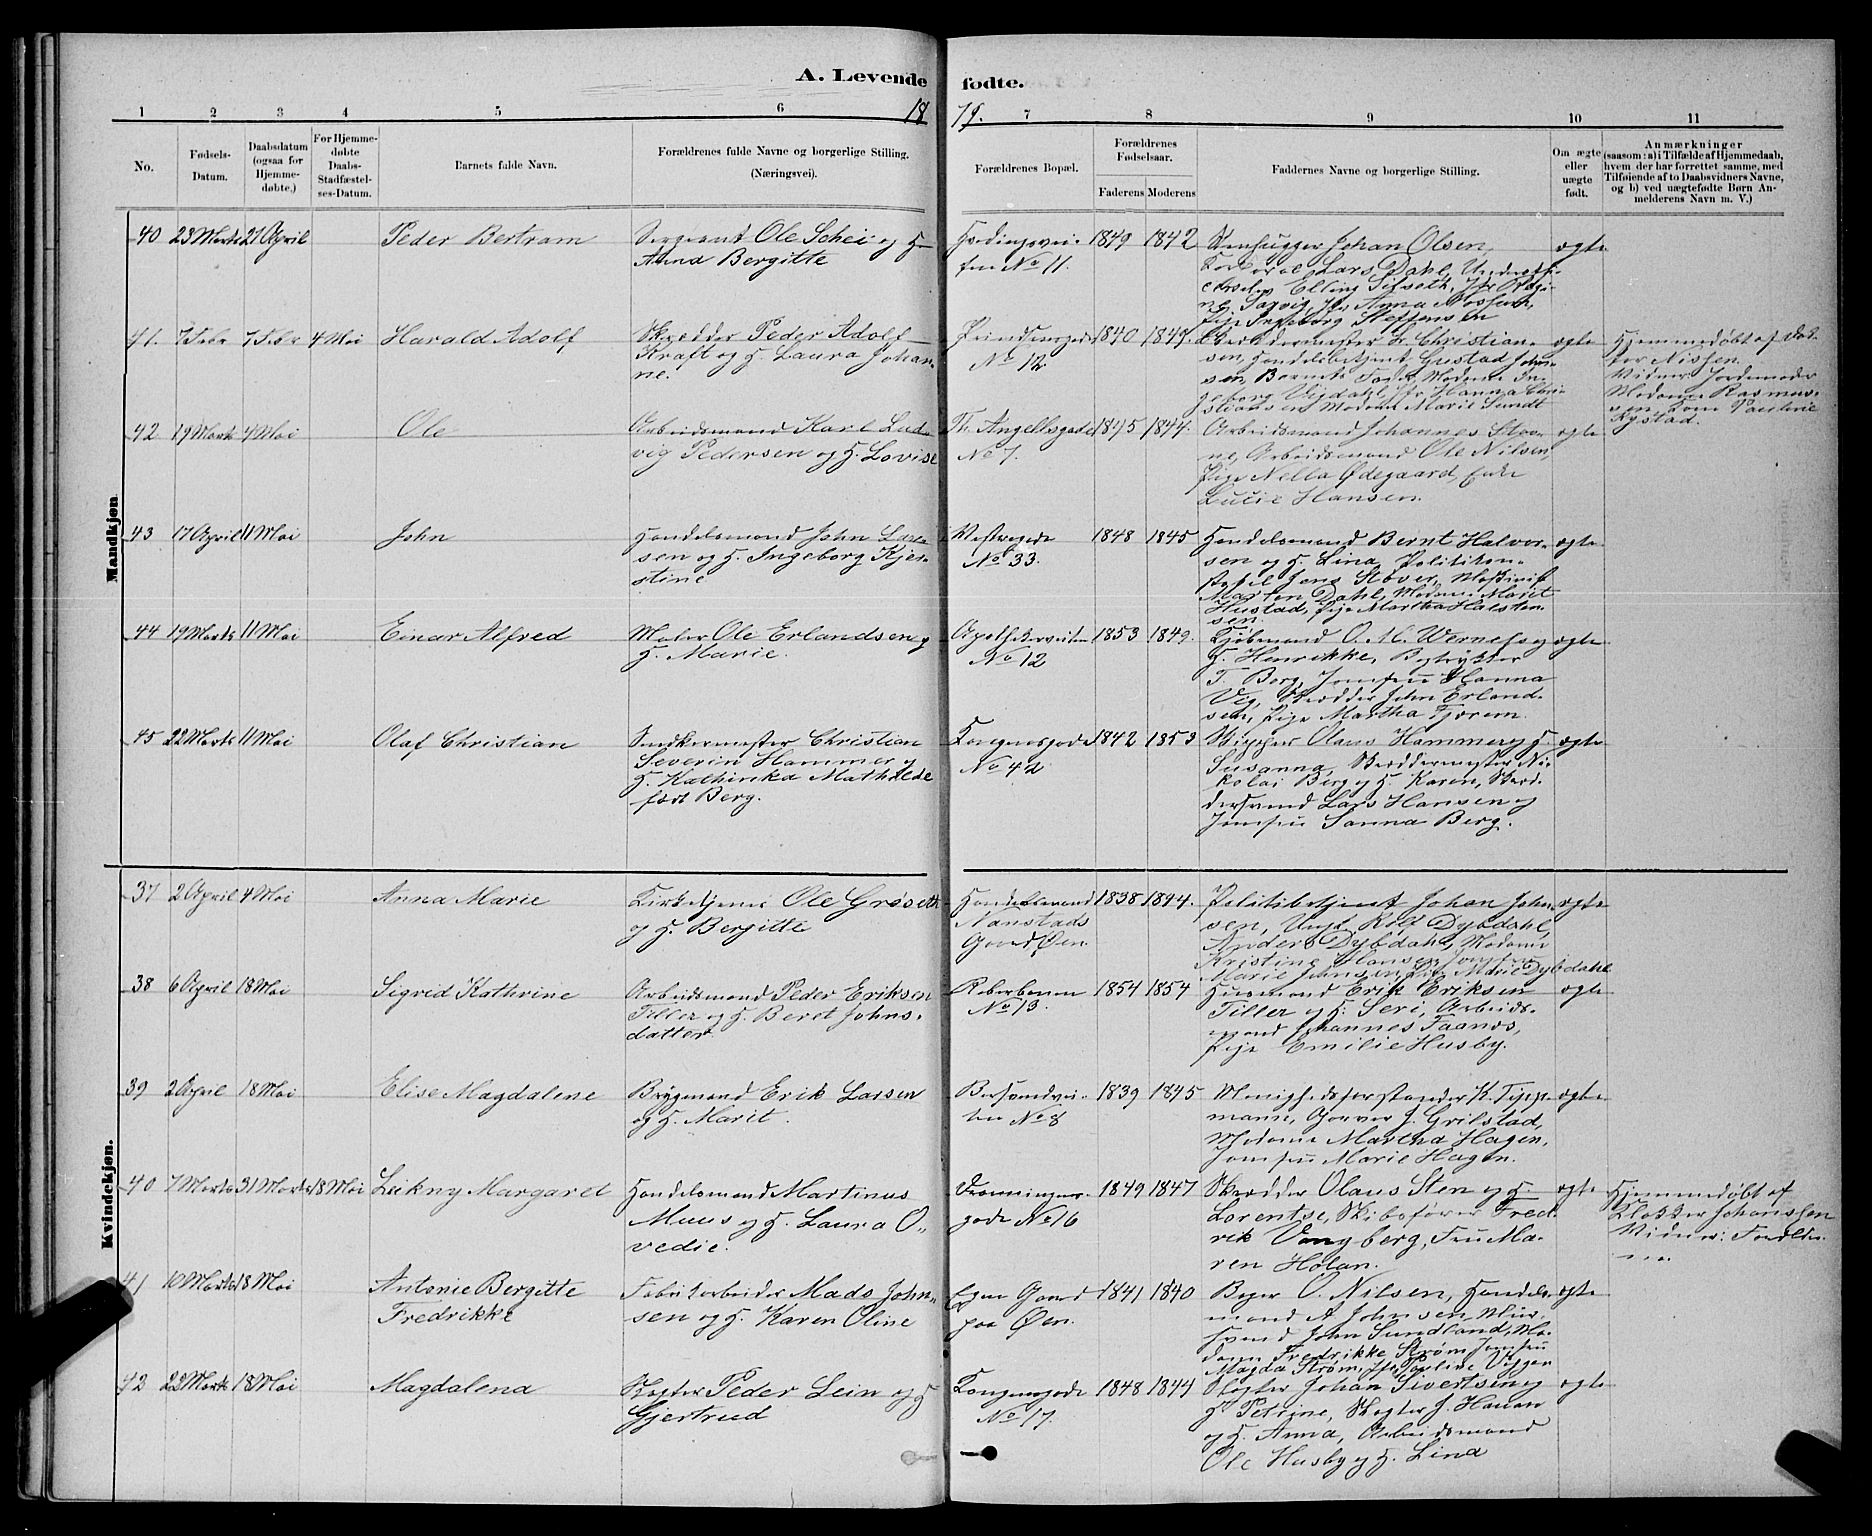 A. Levende fødte.
1879.
1 2 3 4 5 6 7 8 9 10 11
No.
Fødsels-Datum.
Daabsdatum (ogsaa for Hjemme-døbte.)
For Hjemme-døbte Daabs-Stadfæstel-ses-Datum.
Barnets fulde Navn.
Forældrenes fulde Navne og borgerlige Stilling. (Næringsvei).
Forældrenes Bopæl.
Forældrenes Fødselsaar.
Faderens Moderens
Faddernes Navne og borgerlige Stilling.
Om ægte eller uægte født.
Anmærkninger
(saasom: a) i Tilfælde af Hjemmedaab,
hvem der har forrettet samme, med
Tilføiende af to Daabsvidners Navne,
og b) ved uægtefødte Børn An-
melderens Navn m. V.)
Mandkjøn
40 23 Marts 27 April Peder Bertram
Sergeant Ole Schei og H.
Anna Bergitte
No 11.
1849 1842
Stenhugger Johan Olsen,
Lars Dahl,
Elling
Anna
Pige Ingeborg Steffensen
ægte
41. 7 Febr 7 Febr 4 Mai Harald Adolf
Skrædder Peder Adolf
Kraft og H. Laura Johan-
ne.
Prindsensgade
No 12
1840 1849.
Skræddermester Christian-
sen, Handelsbetjent Gustad Johan-
sen, Barnets Fader, Madame In-
geborg Vigdahl, Hanna Chri-
stiansen Madam Marie Sundt
ægte
Hjemmedøbt af Dok-
tor Nissen
Vidner Jordemoder
Madame Rasmus-
sen, Pauline
Rystad.
42 19 Marts 4 Mai Ole
Arbeidsmand Karl Lud-
vig Pedersen og H. Lovise
Th. Angellsgade
No 7.
1845 1844.
Arbeidsmand Johannes Stav-
ne, Arbeidsmand Ole Nilsen,
Pige Nella Ødegaard, Enke
Lucie Hansen.
ægte
43 17 April 11 Mai John
Handelsmand John Lar-
sen og H. Ingeborg Kjer-
stine
No 33.
1848 1845
Handelsmand Bernt Halvor-
sen og H. Lina, Politikon-
stabel Jens Støver, Maskinist
Marten Dahl, Madame Marit
Hustad, Pige Martha Halsten-
sen.
ægte
44 19 Marts 11 Mai Einar Alfred
Maler Ole Erlandsen og
H. Marie.
Apothekerveiten
No 12
1853 1849.
Kjøbmand O. M. Wernes og
H. Henrikke, Bogtrykker
T. Berg, Jomfru Hanna
Vig, Skrædder John Erland-
sen, Pige Martha Fjærem.
ægte
45 22 Marts 11 Mai Olaf Christian
Snedkermester Christian
Severin Hammer og
H. Kathinka Mathilde
født Berg.
Kongensgade
No 42
1842 1853
Skipper Olaus Hammer og H.
Susanna, Skræddermester Ni-
kolai Berg og H. Karen, Skræd-
dersvend Lars Hansen og
Jomfru Sanna Berg.
ægte
Kvindekjøn.
37 2 April 4 Mai Anna Marie
Kirketjener Ole Grøseth
og H. Bergitte
Handelsmand
Nanstads
Gaard, Øen.
1838 1844.
Politibetjent Johan John-
sen, Ungk. Rolf Dybdahl,
Anders Dybdahl, Madame
Kristine Hansen, Jomfru
Marie Johnsen, Pige Marie Dybdahl
ægte
38 6 April 18 Mai Sigrid Kathrine
Arbeidsmand Peder Eriksen
Tiller og H. Beret Johns-
datter
Reberbanen
No 13.
1854 1854
Husmand Erik Eriksen
Tiller og H. Seri, Arbeids-
mand Johannes Faanes,
Pige Emilie Husby.
ægte
39 2 April 18 Mai Elise Magdalene
Brygmand Erik Larsen
og H. Marit.
Bersvendvei-
ten No 8
1839 1845
Menighedsforstander K. Tyge-
mann, Garver J. Grilstad,
Madame Marena Hagen,
Jomfru Marie Hagen.
ægte
40 7 Marts 31 Marts 18 Mai Leikny Margaret
Handelsmand Martinus
Muus og H. Laura O-
vedie.
Dronningens-
gade No 16
1849 1847
Skrædder Olaus Sten og H.
Lorentse, Skibsfører Fred-
rik Vangberg, Fru Ma-
ren Holan.
ægte
Hjemmedøbt af
Klokker Johanssen
Vidner: Foreldre-
ne
41 10 Marts 18 Mai Antonie Bergitte
Fredrikke
Fabrikarbeider Mads John-
sen og H. Karen Oline
Egen Gaard
paa Øen.
1841 1840
Bager O. Nilsen, Handels-
mand A Johnsen, Mur-
svend John Sundland, Ma-
dame Fredrikke Strøm, Jomfru
Magda Strøm, Pauline Viggen
ægte
42 22 Marts 18 Mai Magdalena
Slagter Peder Lein og H.
Gjertrud
Kongensgade
No 17.
1848 1844
Slagter Johan Sivertsen og
H Petrine, Slagter J. Hansen
og H. Anna, Arbeidsmand
Ole Husby og H. Lina
ægte